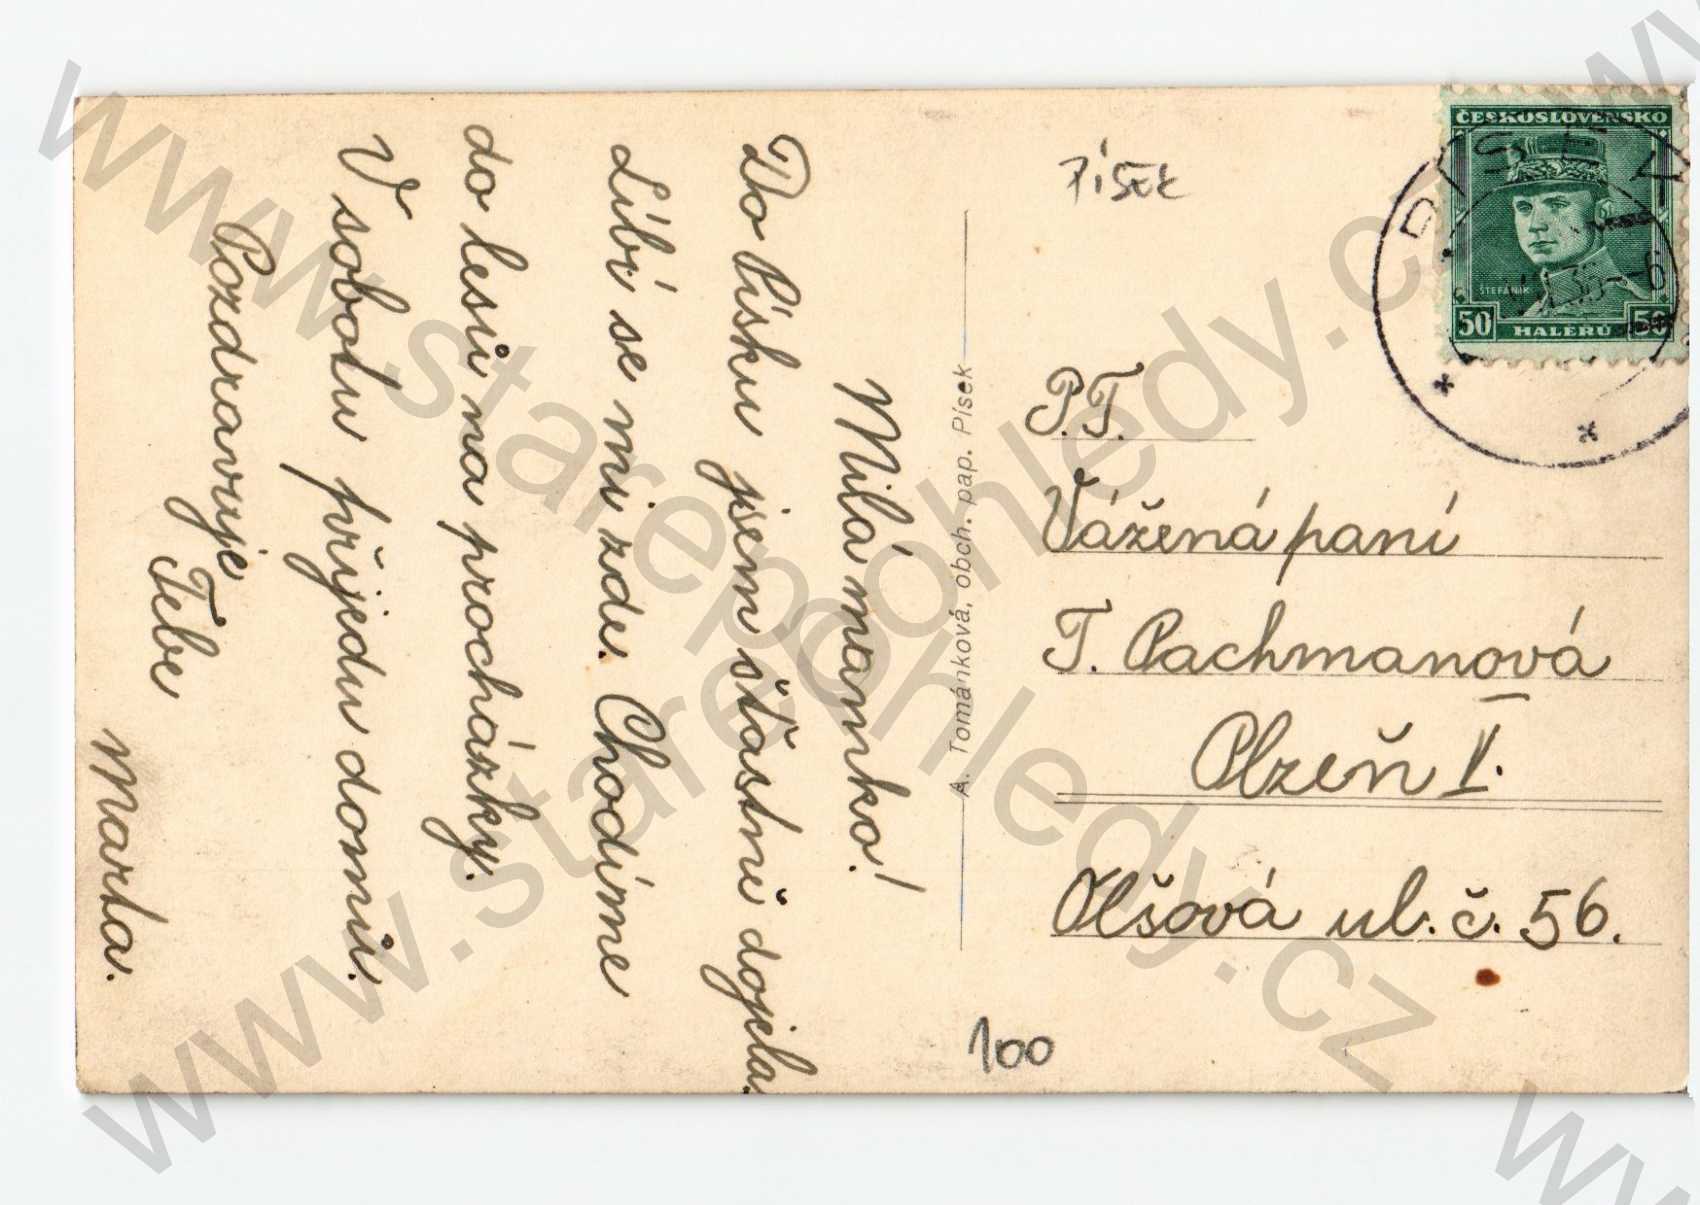 Milá mamko!
Do Písku jsem šťastně dojela.
Líbí se mi zde. Chodíme
do lesů na procházky.
V sobotu přijedu domů.
Pozdravuje
Tebe
Marta.
A. Tománková, obch. pap. Písek
PÍSEK
ČESKOSLOVENSKO
ŠTEFÁNIK
50 HALÉŘŮ 50
PÍSEK
P.T.
Vážená paní
T. Pachmanová
Plzeň II.
Olšová ul. č. 56.
100
www.starepohledy.cz
www.starepohledy.cz